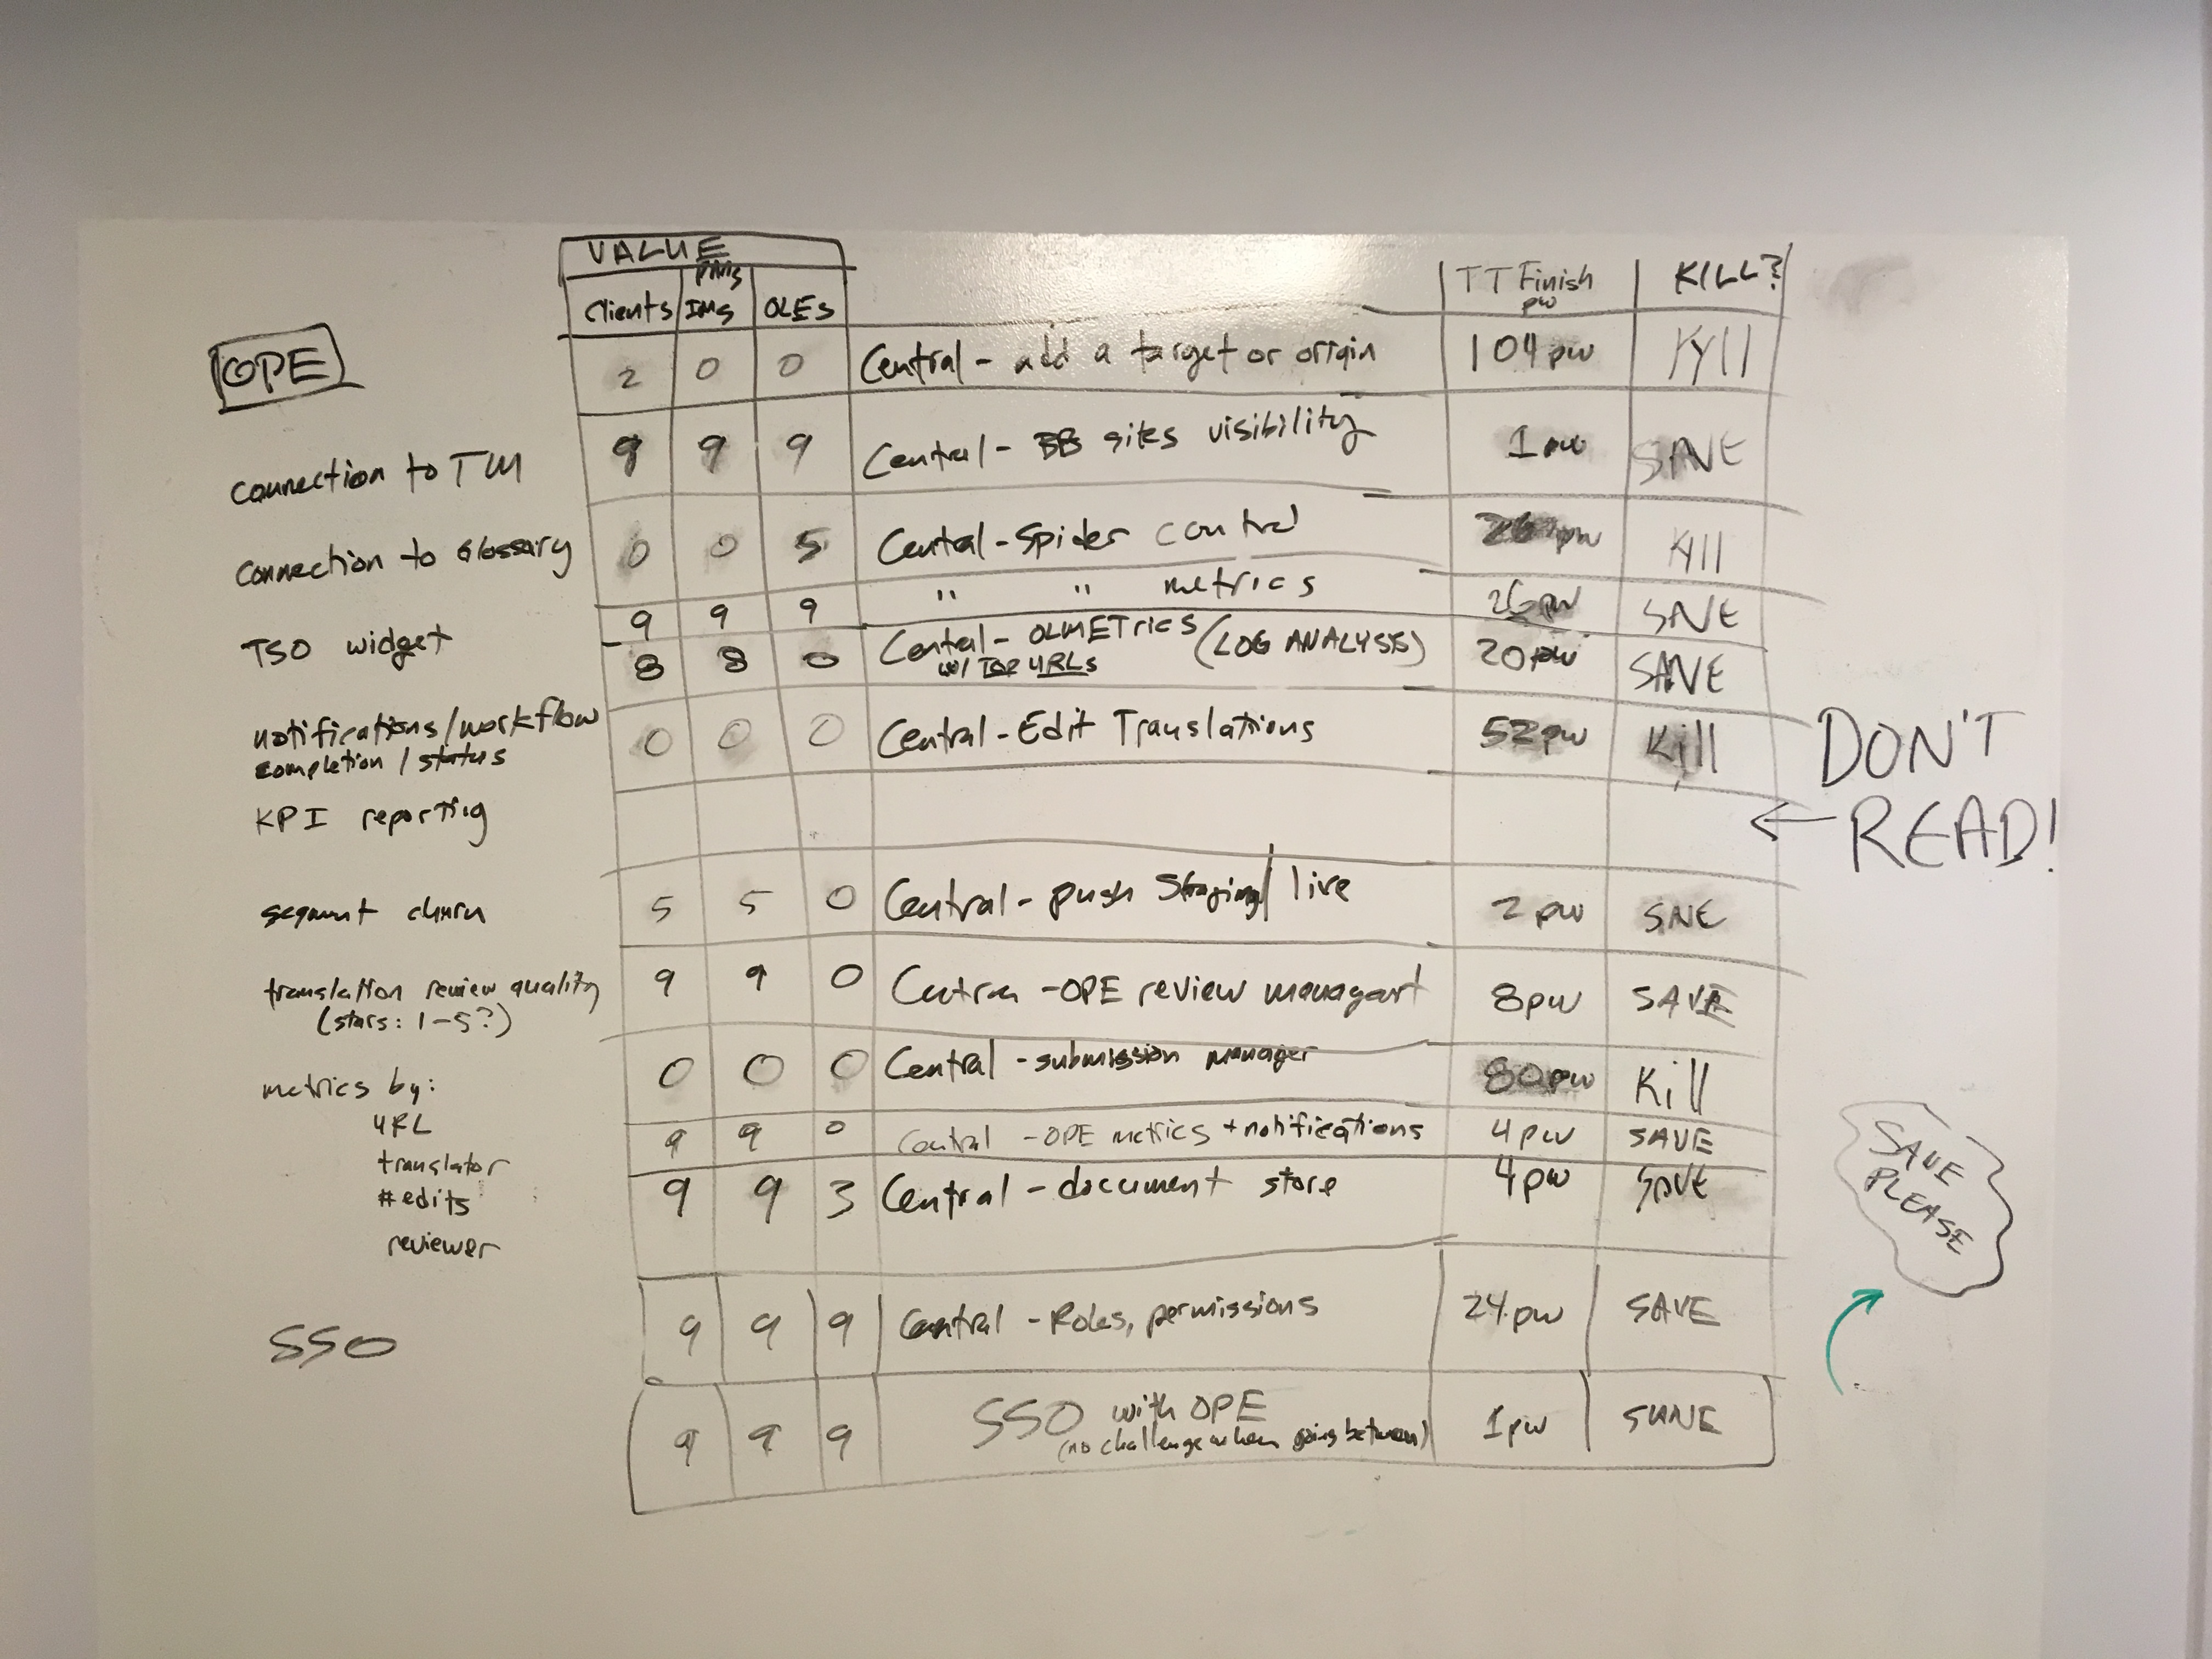 VALUE
PMs
Clients IMs OLEs TT Finish KILL?
pw
OPE
2 0 0 Central - add a target or origin 104 pw Kill
Connection to TM
9 9 9 Central - BB sites visibility 1 pw SAVE
Connection to Glossary
0 0 5 Central - Spider control 26 pw Kill
9 9 9 " " metrics 26 pw SAVE
TSO widget
8 8 0 Central - OLMETRICS (LOG ANALYSIS) 20 pw SAVE
w/ TOP URLs
notifications/workflow
completion / status
0 0 0 Central - Edit Translations 52 pw Kill
DON'T
← READ!
KPI reporting
segment churn
5 5 0 Central - push Staging/ live 2 pw SAVE
translation review quality
(stars: 1-5?)
9 9 0 Central - OPE review managemt 8pw SAVE
metrics by:
URL
translator
#edits
reviewer
0 0 0 Central - submission manager 80pw Kill
9 9 0 Central - OPE metrics + notifications 4pw SAVE
9 9 3 Central - document store 4pw SAVE
SAVE
PLEASE
9 9 9 Central - Roles, permissions 24 pw SAVE
SSO
9 9 9 SSO with OPE 1pw SAVE
(no challenge when going between)